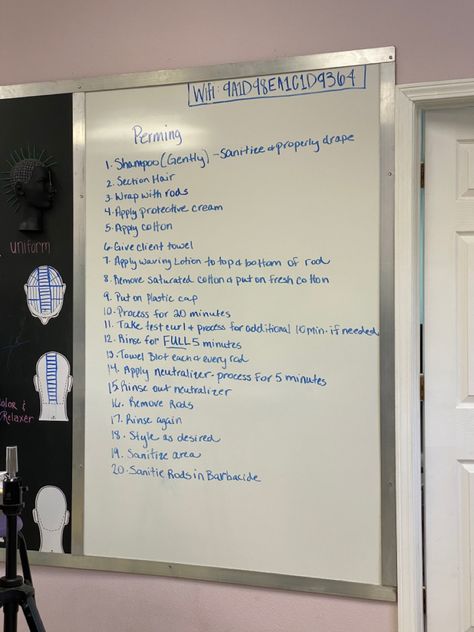 Wifi: 9A1D48EA1C1D9364
Perming
1. Shampoo (Gently) - Sanitize & properly drape
2. Section Hair
3. Wrap with rods
4. Apply protective cream
5. Apply cotton
6. Give client towel
7. Apply waving Lotion to top & bottom of rod
8. Remove saturated cotton & put on fresh cotton
9. Put on Plastic cap
10. Process for 20 minutes
11. Take test curl & process for additional 10 min. if needed
12. Rinse for FULL 5 minutes
13. Towel Blot each & every rod
14. Apply neutralizer - process for 5 minutes
15. Rinse out neutralizer
16. Remove Rods
17. Rinse again
18. Style as desired
19. Sanitize area
20. Sanitie Rods in Barbacide
uniform
Color &
Relaxer